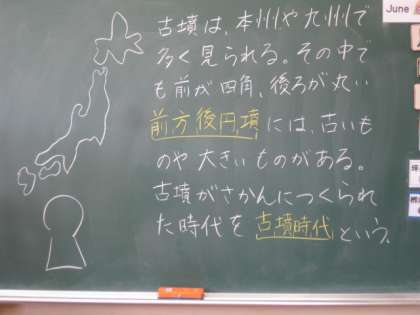 古墳は、本州や九州で
多く見られる。その中で
も前が四角、後ろが丸い
前方後円墳には、古いも
のや大きいものがある。
古墳がさかんにつくられ
た時代を古墳時代という。
June